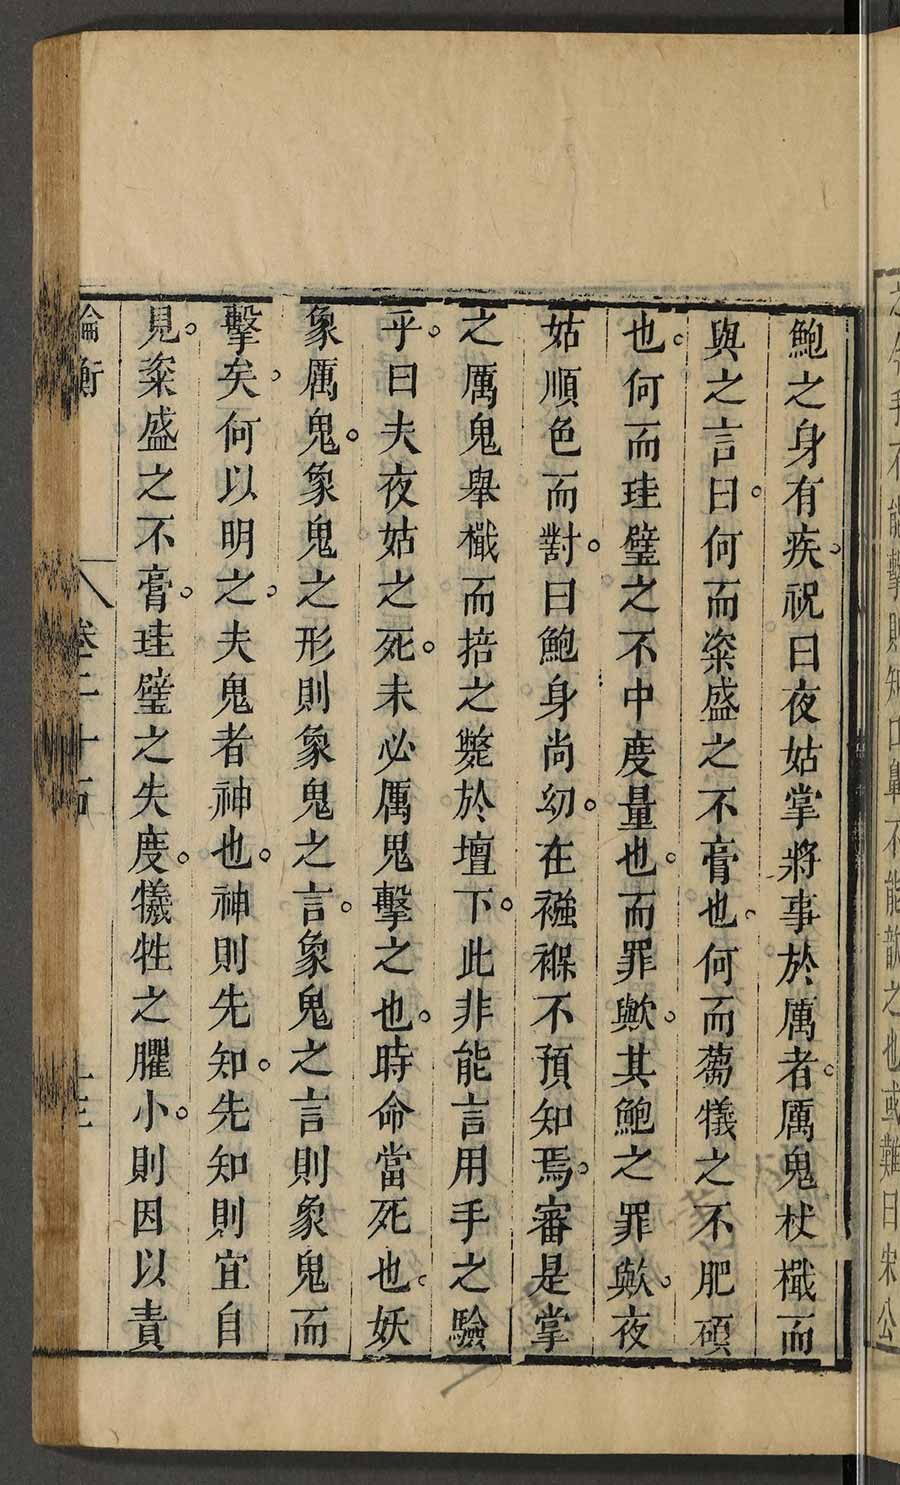 手不能擊則知口鼻不能歆之也或難曰宋公
鮑之身有疾。祝曰夜姑掌將事於厲者。厲鬼杖檝而
與之言。曰何而粢盛之不膏也。何而蒭犧之不肥碩
也。何而珪璧之不中度量也。而罪歟。其鮑之罪歟。夜
姑順色而對。曰鮑身尚幼。在襁褓不預知焉。審是掌
之厲鬼舉檝而掊之斃於壇下。此非能言用手之驗
乎。曰夫夜姑之死。未必厲鬼擊之也。時命當死也。妖
象厲鬼。象鬼之形則象鬼之言。象鬼之言則象鬼而
擊矣。何以明之。夫鬼者神也。神則先知。先知則宜自
見。粢盛之不膏。珪璧之失度。犧牲之臞小。則因以責
論衡 卷二十五 十三